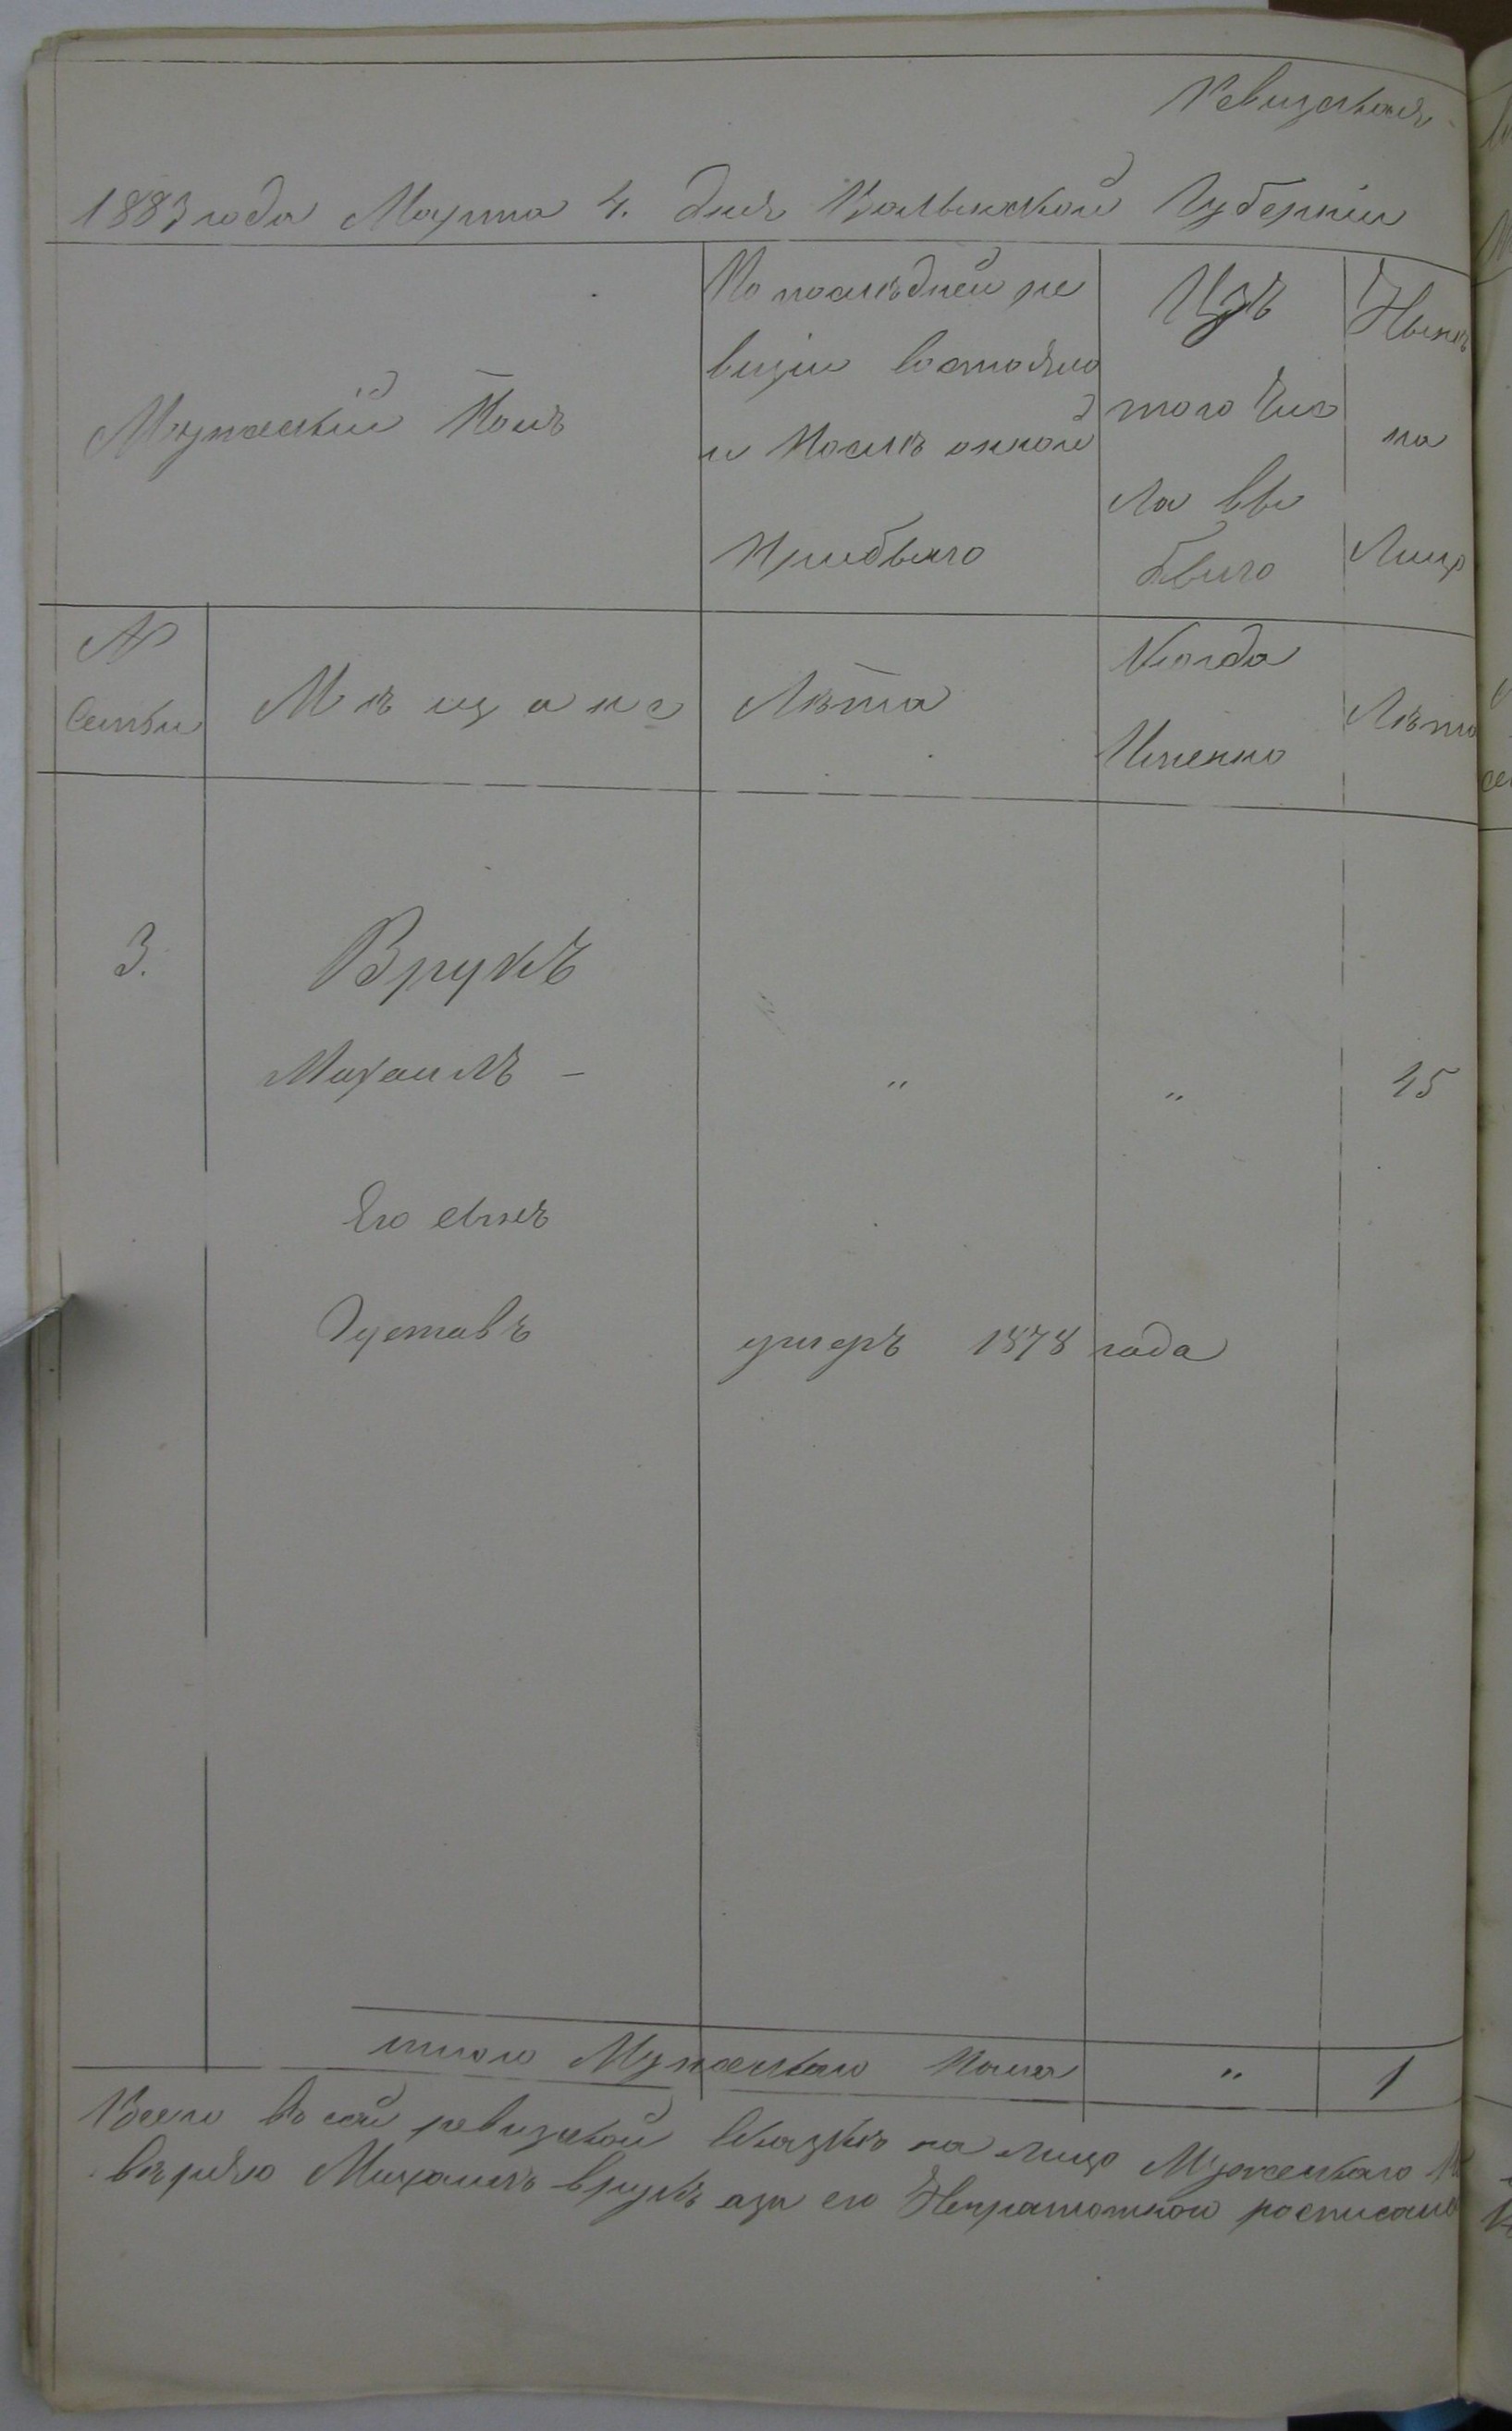 Ревизская
1883 года Марта 4. дня Волынской Губернiи
Мужескiй Полъ
По послѣдней ре
визiи состояло
и Послѣ онной
Прибыло
Изъ
того Чис
ла вы
было
Нынѣ
на
Лицо
№
Семьи
Мѣщане
Лѣта
Когда
Именно
Лѣта
3.
Врукъ
Михаилъ - " " 45
Его сынъ
Густавъ умеръ 1878 года
итого Мужескаго Пола " 1
Всего въ сей ревизской сказкѣ на лицо Мужескаго
вѣрно Михаилъ Врукъ а за его Неграмотной росписался